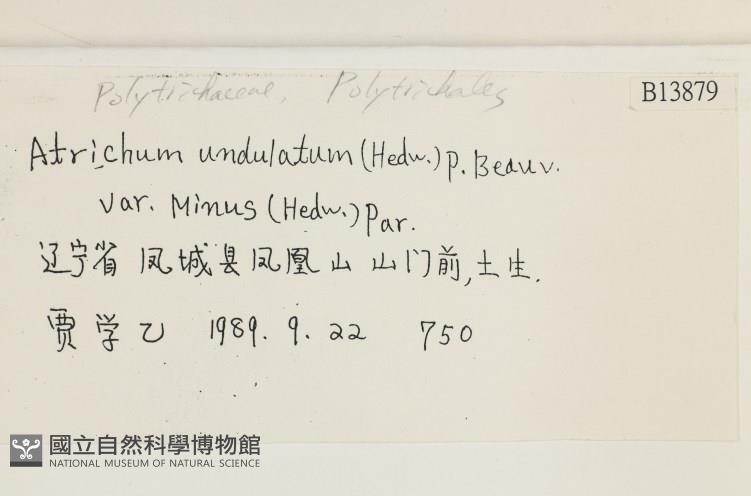 Polytrichaceae, Polytrichales
B13879
Atrichum undulatum (Hedw.) P. Beauv.
var. Minus (Hedw.) Par.
辽宁省 凤城县凤凰山 山门前,土生.
贾学乙 1989. 9. 22 750
國立自然科學博物館
NATIONAL MUSEUM OF NATURAL SCIENCE